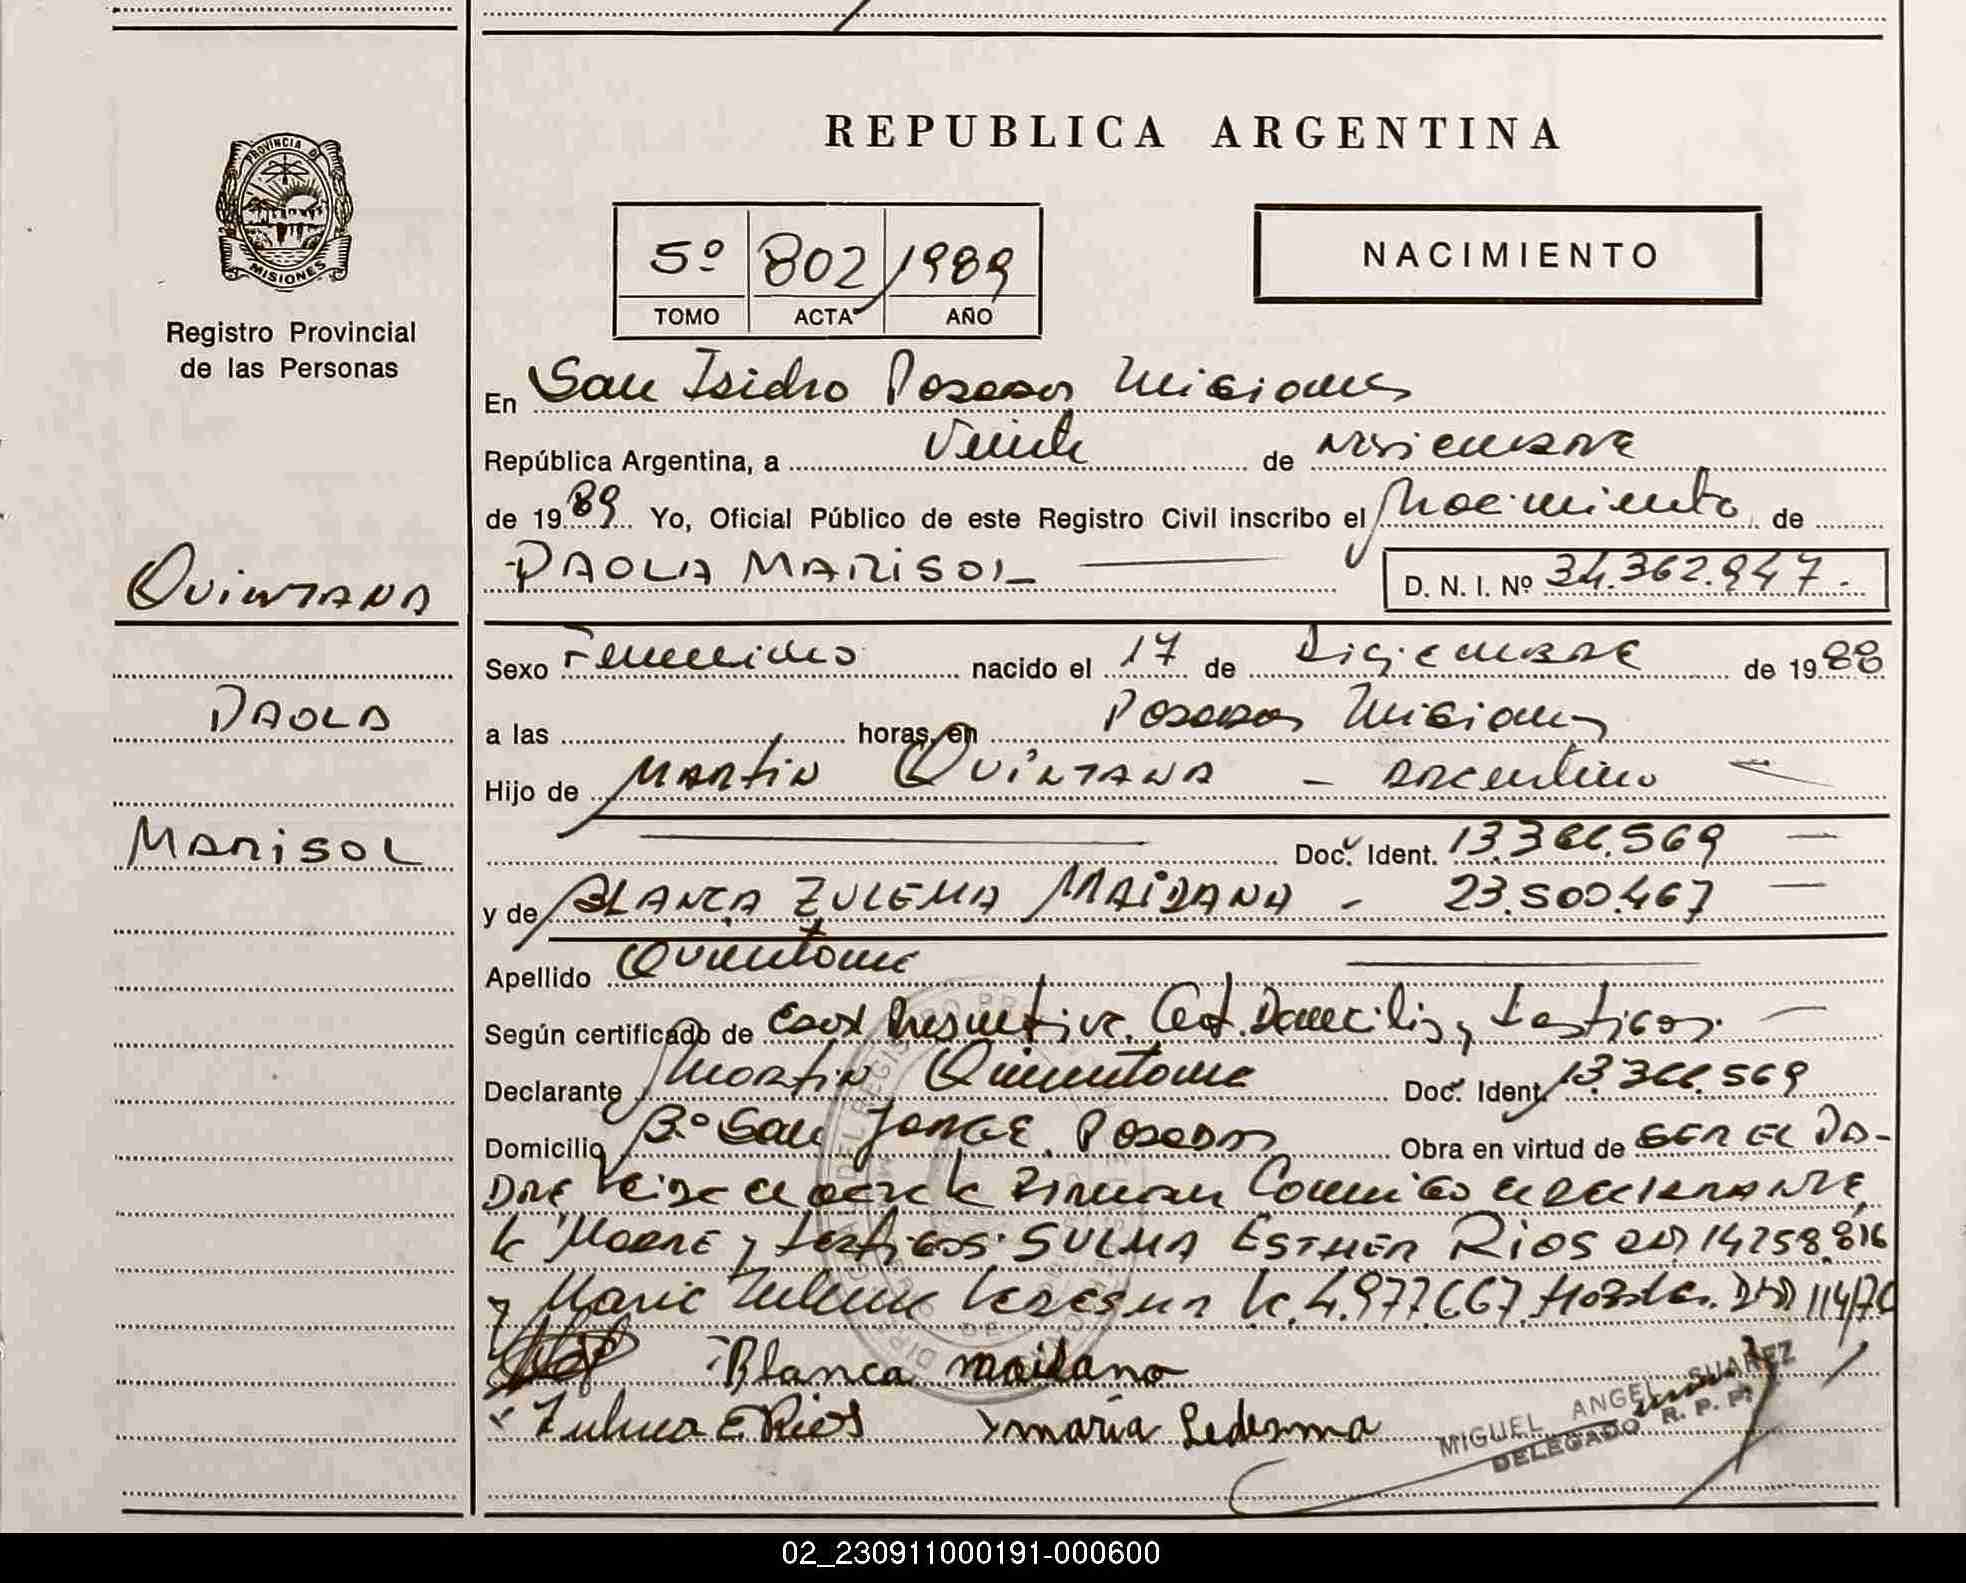 REPUBLICA ARGENTINA
PROVINCIA DE
MISIONES
Registro Provincial
de las Personas
5º 802 1989
TOMO ACTA AÑO
NACIMIENTO
En San Isidro Posadas Misiones
República Argentina, a Veinte de
de 1989 Yo, Oficial Público de este Registro Civil inscribo el Nacimiento de
QUINTANA
PAOLA MARISOL
D. N. I. Nº 34.362.947.-
PAOLA
MARISOL
Sexo Femenino nacido el 17 de Diciembre de 1988
a las horas, en Posadas Misiones
Hijo de Martin QUINTANA - argentino
Doc. Ident. 13.366.569
y de BLANCA ZULEMA MAIDANA - 23.500.467
Apellido Quintana
Según certificado de Cert. Domicilio y testigos.
Declarante Martin Quintana Doc. Ident. 13.366.569
Domicilio Bº San JORGE Posadas Obra en virtud de SER EL PA-
DRE Firman Conmigo el declarante,
la Madre y testigos: SULMA ESTHER RIOS DNI 14.258.816
y Maria Zulema Ledesma Lc. 4.977.667.
Blanca maidana
Zulma E. Rios maria Ledesma
MIGUEL ANGEL SUAREZ
DELEGADO R. P. P.
02_230911000191-000600